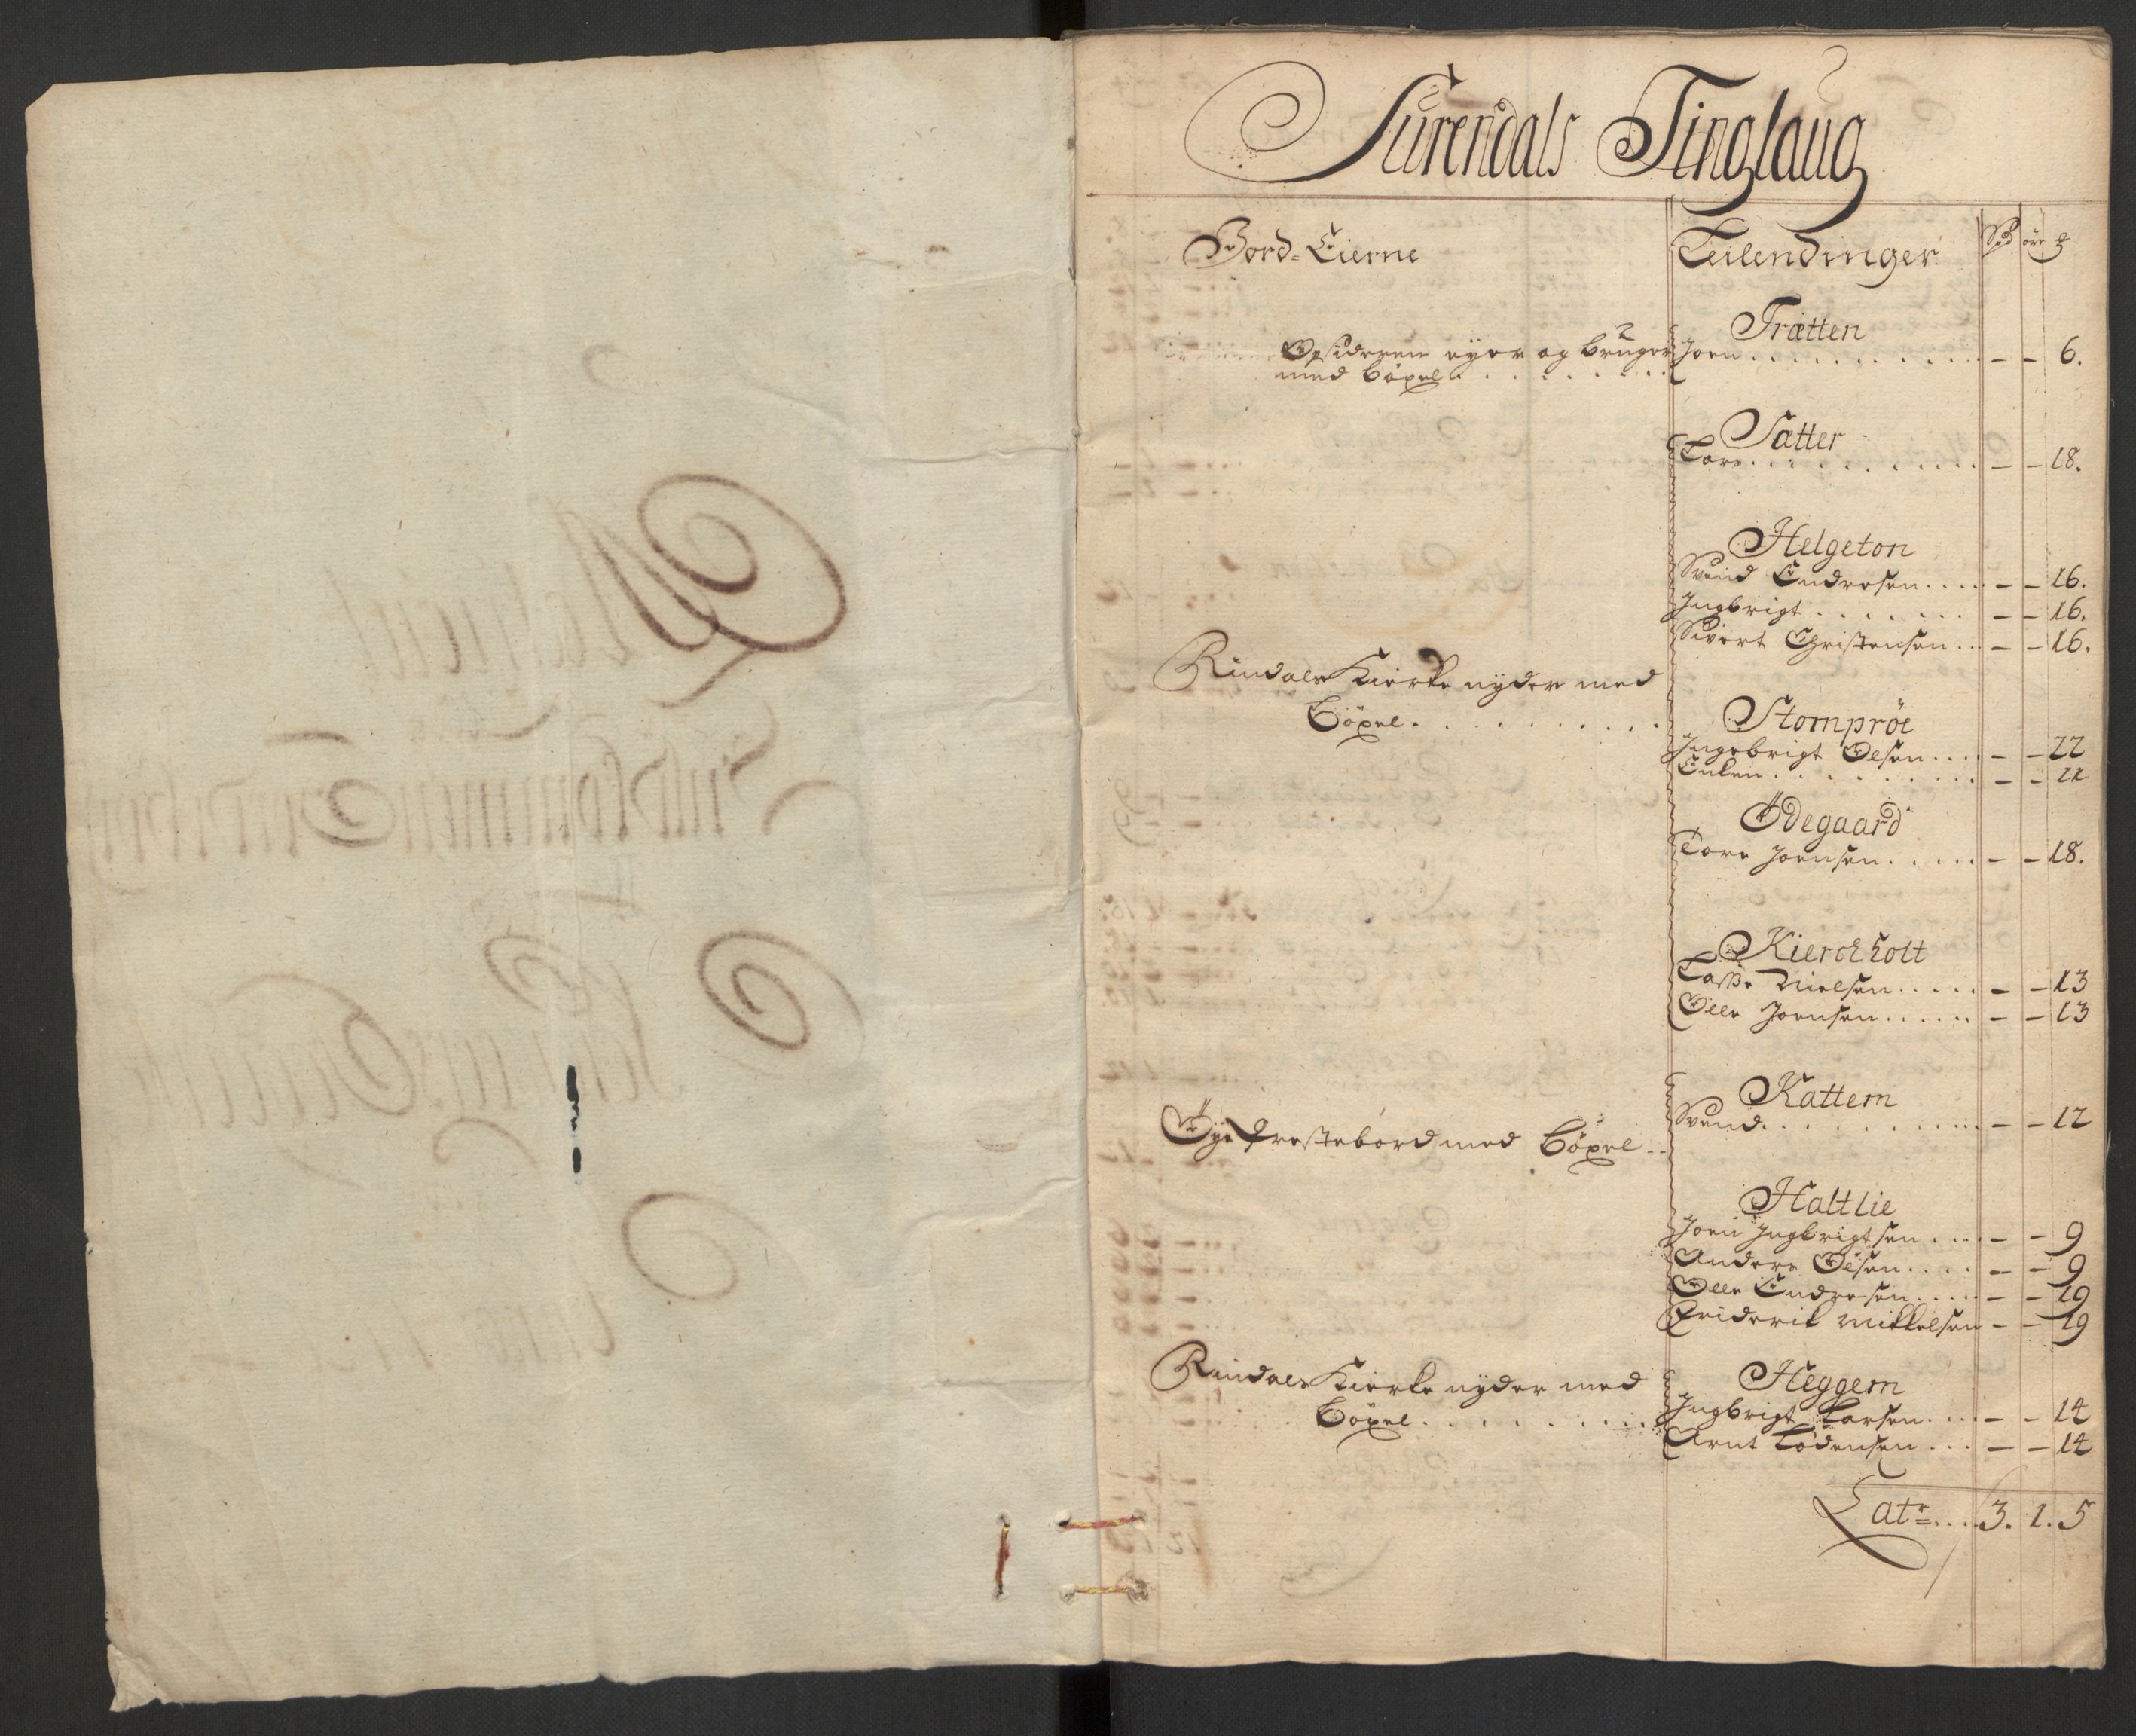 Surendals Tinglaug
Jord-Eierne
Leilendinger
Spd øre 
Tratten
Opsideren eyer og bruger Joen - - 6.
med böxel
Satter
Lars - - 18.
Helgeton
Svend Endresen - - 16.
Ingbrigt - - 16.
Sivert Christensen - - 16.
Rindals Kierke nyder med
böxel
Stompröe
Ingebrigt Olsen - - 22
Enken - - 22
Ödegaard
Tore Joensen - - 18.
Kierckholt
Lasse Nielsen - - 13
Olle Joensen - - 13
Kattem
Svend - - 12
Öye Prestebord med böxel
Haltlie
Joen Ingbrigtsen - - 9
Anders Olsen - - 9
Olle Endresen - - 19
Friderik Mikkelsen - - 19
Rindals Kierke nyder med
böxel
Heggem
Ingbrigt Larsen - - 14
Arnt Lodensen - - 14
Latr 3. 1. 5